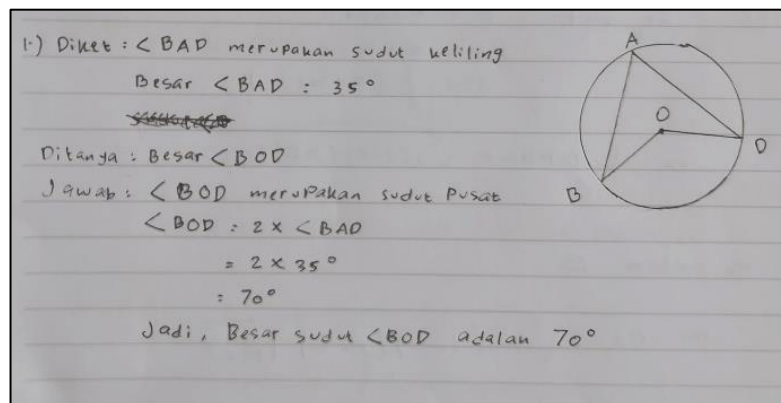 1.) Diket : < BAD merupakan sudut keliling
Besar < BAD : 35°
Ditanya : Besar < BOD
Jawab : < BOD merupakan sudut pusat
< BOD : 2 x < BAD
= 2 x 35°
: 70°
Jadi, Besar sudut < BOD adalah 70°
A
O
D
B